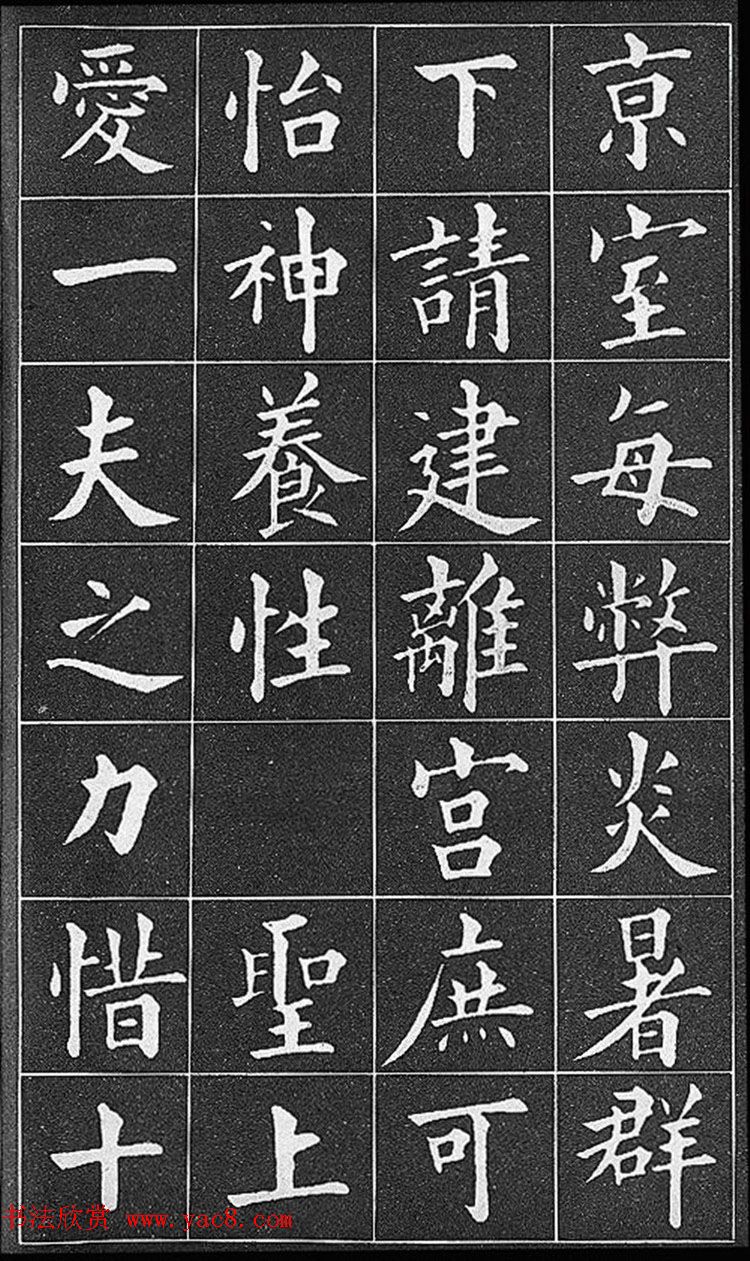 京室每弊炎暑群
下請建離宮庶可
怡神養性 聖上
愛一夫之力惜十
书法欣赏 www.yac8.com